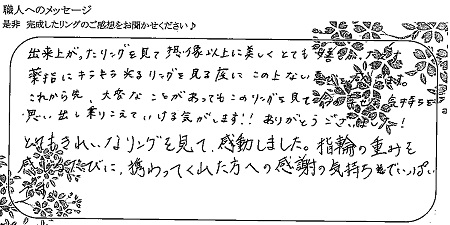 職人へのメッセージ
是非 完成したリングのご感想をお聞かせください♪
出来上がったリングを見て 想像以上に美しくとても
薬指にキラキラ光るリングを見る度に この上ない です。
これから先、大変な ことがあってもこのリングを見て 気持ちを
思い出し乗りこえていける気がします!! ありがとうございました!
とてもきれいなリングを見て、感動しました。指輪の重みを
感じるたびに、携わってくれた方への感謝の気持ちでいっぱい